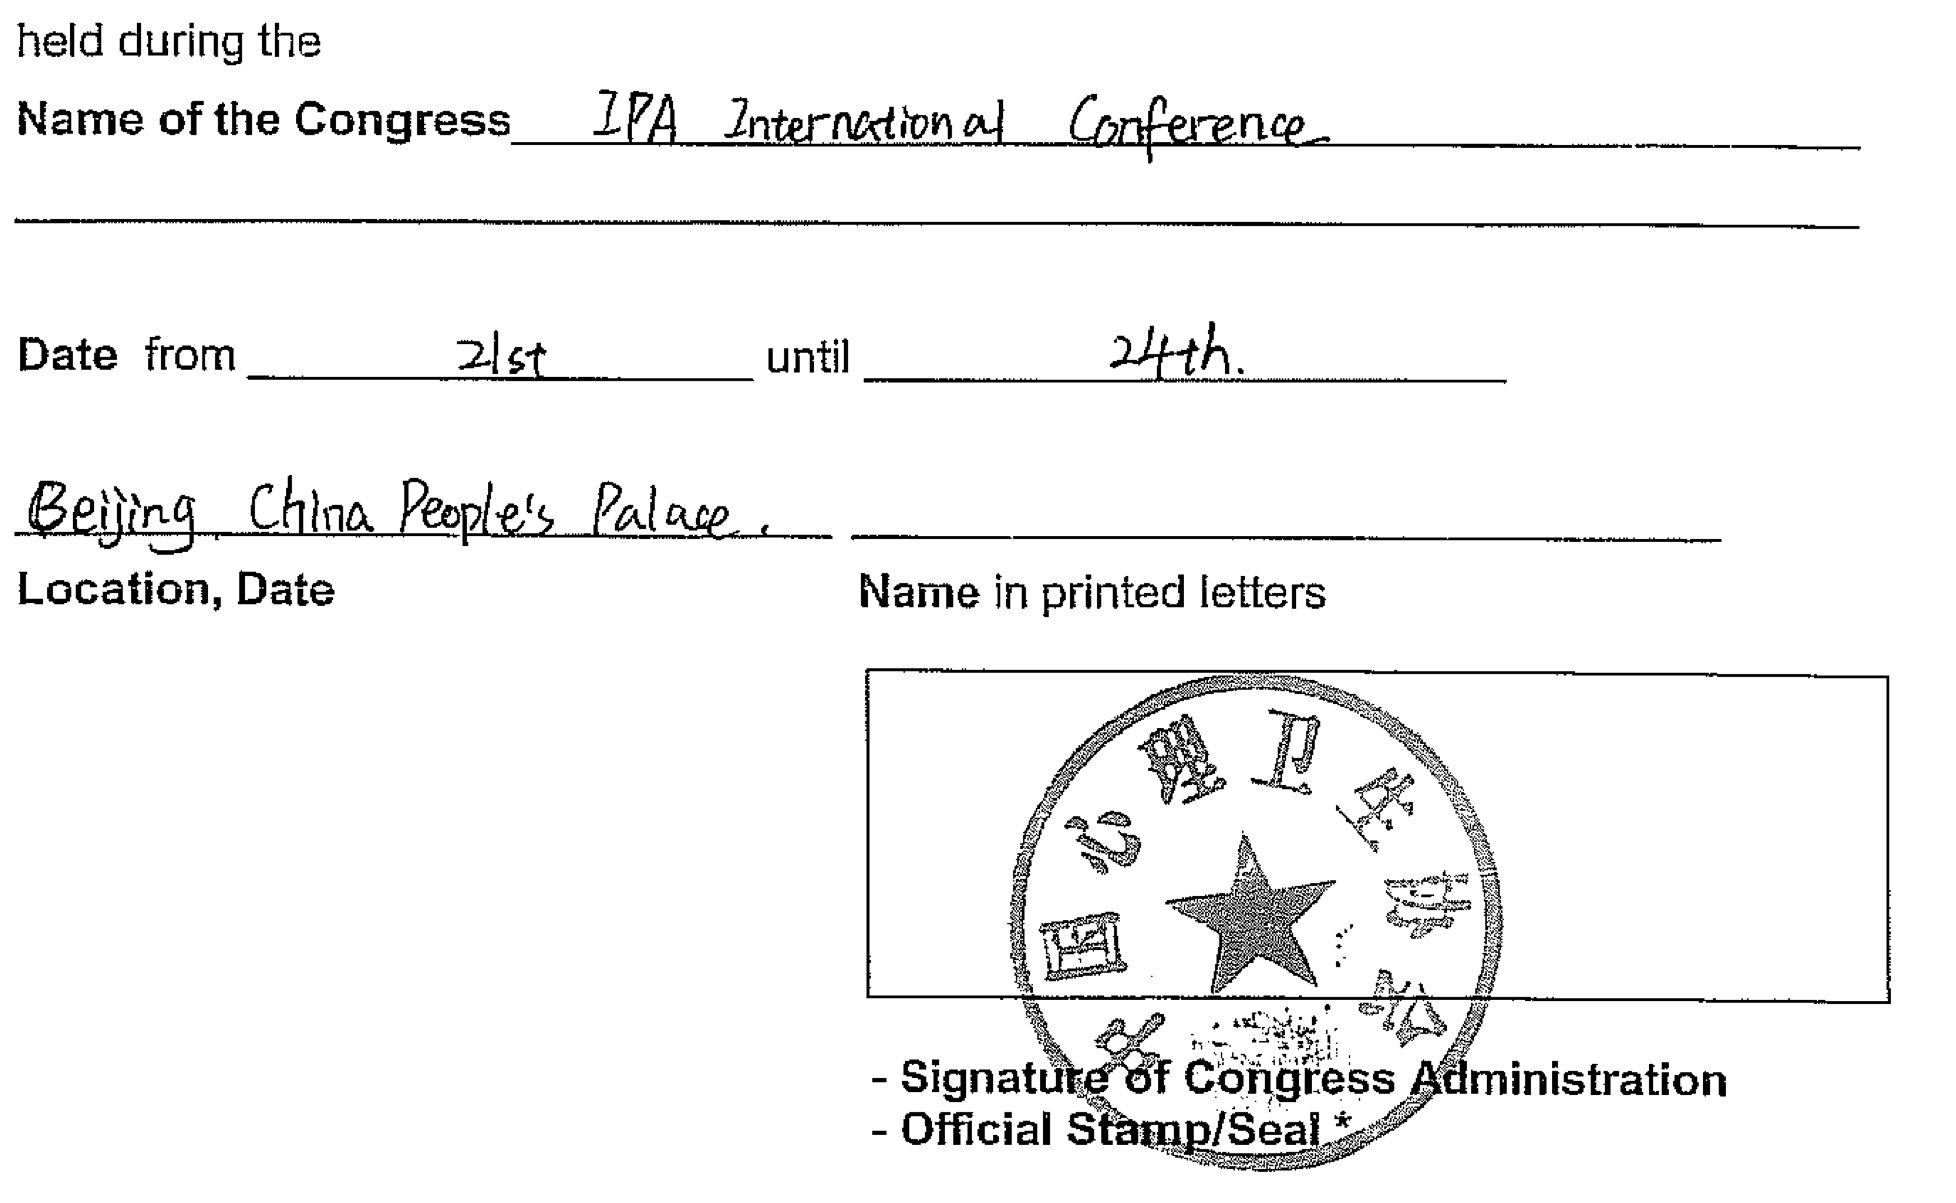 held during the
Name of the Congress IPA International Conference
Date from 21st until 24th.
Beijing China People's Palace.
Location, Date
Name in printed letters
中国心理卫生协会
- Signature of Congress Administration
- Official Stamp/Seal *